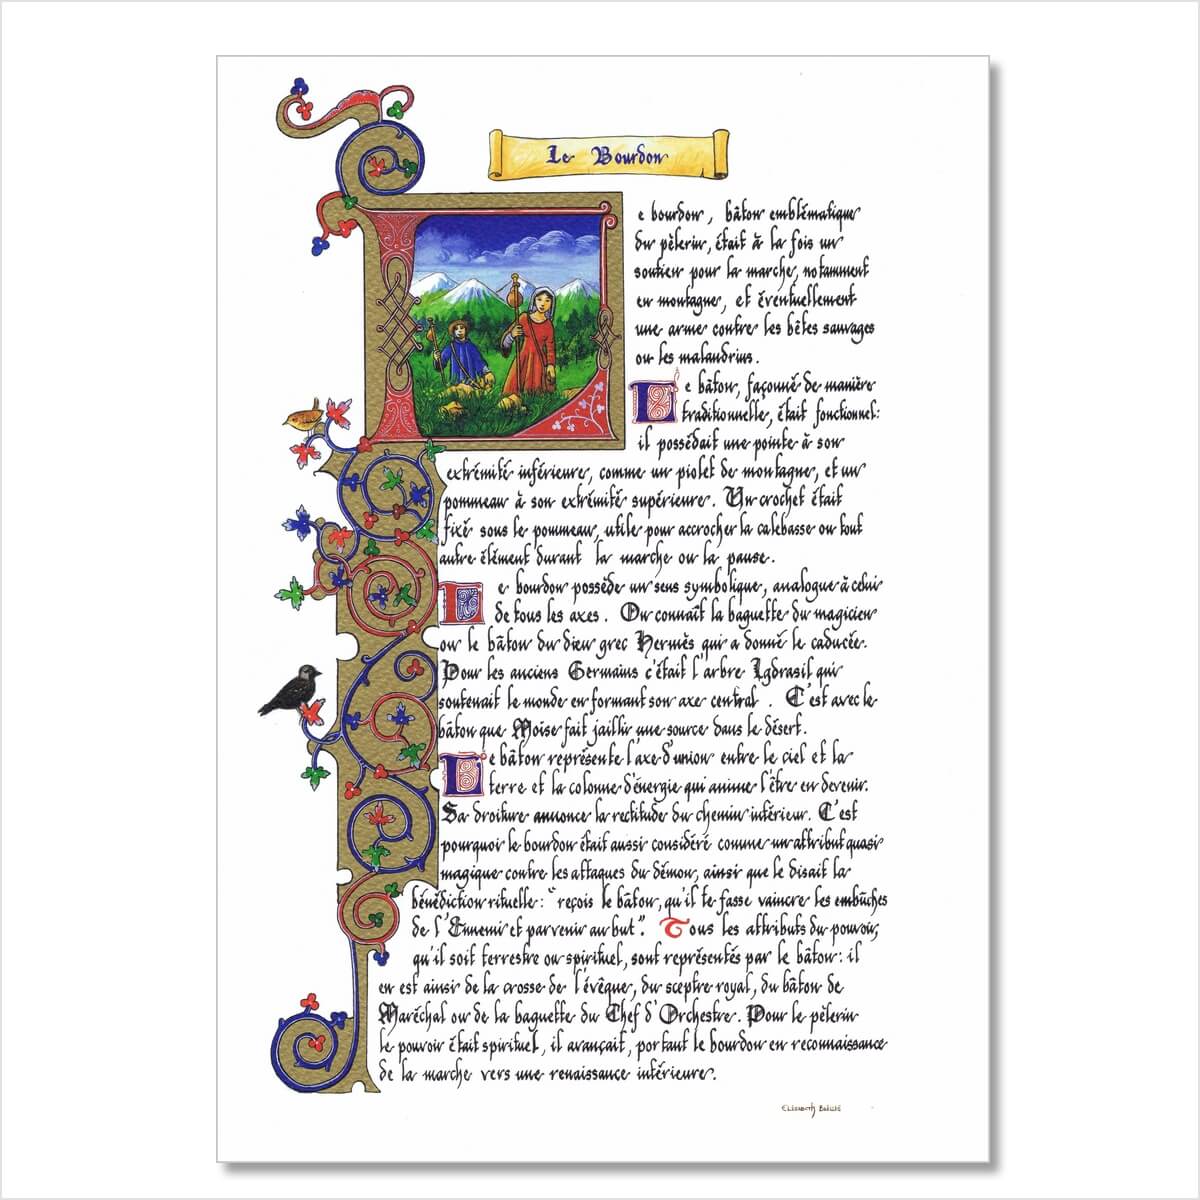 Le Bourdon
Le bourdon, bâton emblématique
du pèlerin, était à la fois un
soutien pour la marche, notamment
en montagne, et éventuellement
une arme contre les bêtes sauvages
ou les malandrins.
Le bâton, façonné de manière
traditionnelle, était fonctionnel:
il possédait une pointe à son
extrémité inférieure, comme un piolet de montagne, et un
pommeau à son extrémité supérieure. Un crochet était
fixé sous le pommeau, utile pour accrocher la calebasse ou tout
autre élément durant la marche ou la pause.
Le bourdon possède un sens symbolique, analogue à celui
de tous les axes. On connaît la baguette du magicien
ou le bâton du dieu grec Hermès qui a donné le caducée.
Pour les anciens Germains c'était l'arbre Igdrasil qui
soutenait le monde en formant son axe central. C'est avec le
bâton que Moïse fait jaillir une source dans le désert.
Le bâton représente l'axe d'union entre le ciel et la
terre et la colonne d'énergie qui anime l'être en devenir.
Sa droiture annonce la rectitude du chemin intérieur. C'est
pourquoi le bourdon était aussi considéré comme un attribut quasi
magique contre les attaques du démon, ainsi que le disait la
bénédiction rituelle: "reçois le bâton, qu'il te fasse vaincre les embûches
de l'Ennemi et parvenir au but". Tous les attributs du pouvoir,
qu'il soit terrestre ou spirituel, sont représentés par le bâton: il
en est ainsi de la crosse de l'évêque, du sceptre royal, du bâton de
Maréchal ou de la baguette du Chef d'Orchestre. Pour le pèlerin
le pouvoir était spirituel, il avançait, portant le bourdon en reconnaissance
de la marche vers une renaissance intérieure.